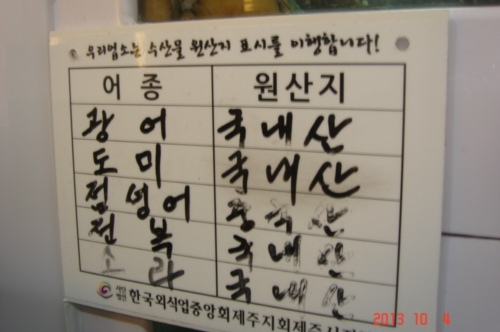 우리업소는 수산물 원산지 표시를 이행합니다!
어종 원산지
광어 국내산
도미 국내산
점성어 중국산
전복 국내산
소라 국내산
사단법인 한국외식업중앙회제주지회제주시지
2013 10 4